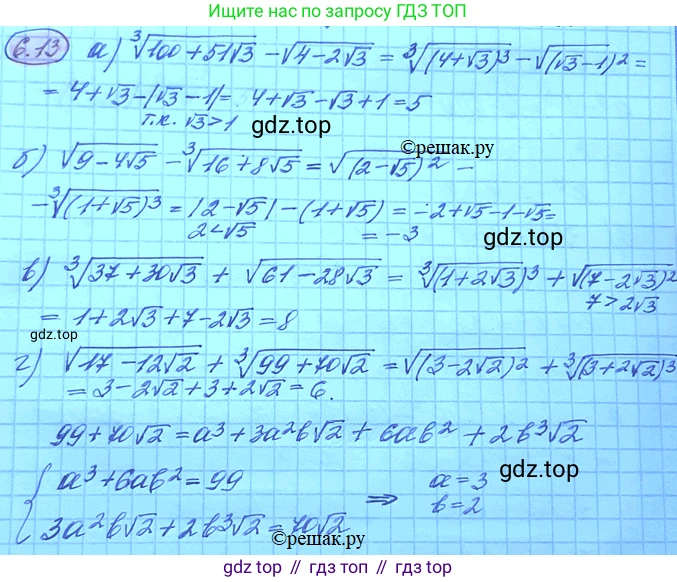 Ищите по запросу ГДЗ ТОП
6.13 а) ∛(100+51√3) − √(4−2√3) = ∛((4+√3)³) − √((√3−1)²) =
= 4+√3−|√3−1| = 4+√3−√3+1=5
т.к. √3>1
gdz.top
©решак.ру
б) √(9−4√5) − ∛(16+8√5) = √((2−√5)²) −
−∛((1+√5)³) = |2−√5| − (1+√5) = −2+√5−1−√5=
2<√5
= −3
©решак.ру
в) ∛(37+30√3) + √(61−28√3) = ∛((1+2√3)³) + √((7−2√3)²)
7>2√3
= 1+2√3+7−2√3=8
gdz.top
г) √(17−12√2) + ∛(99+70√2) = √((3−2√2)²) + ∛((3+2√2)³)
= 3−2√2+3+2√2=6.
99+70√2=a³+3a²b√2+6ab²+2b³√2
{ a³+6ab²=99
3a²b√2+2b³√2=70√2
⇒ a=3
b=2
gdz.top
©решак.ру
gdz.top // гдз.топ // гдз топ